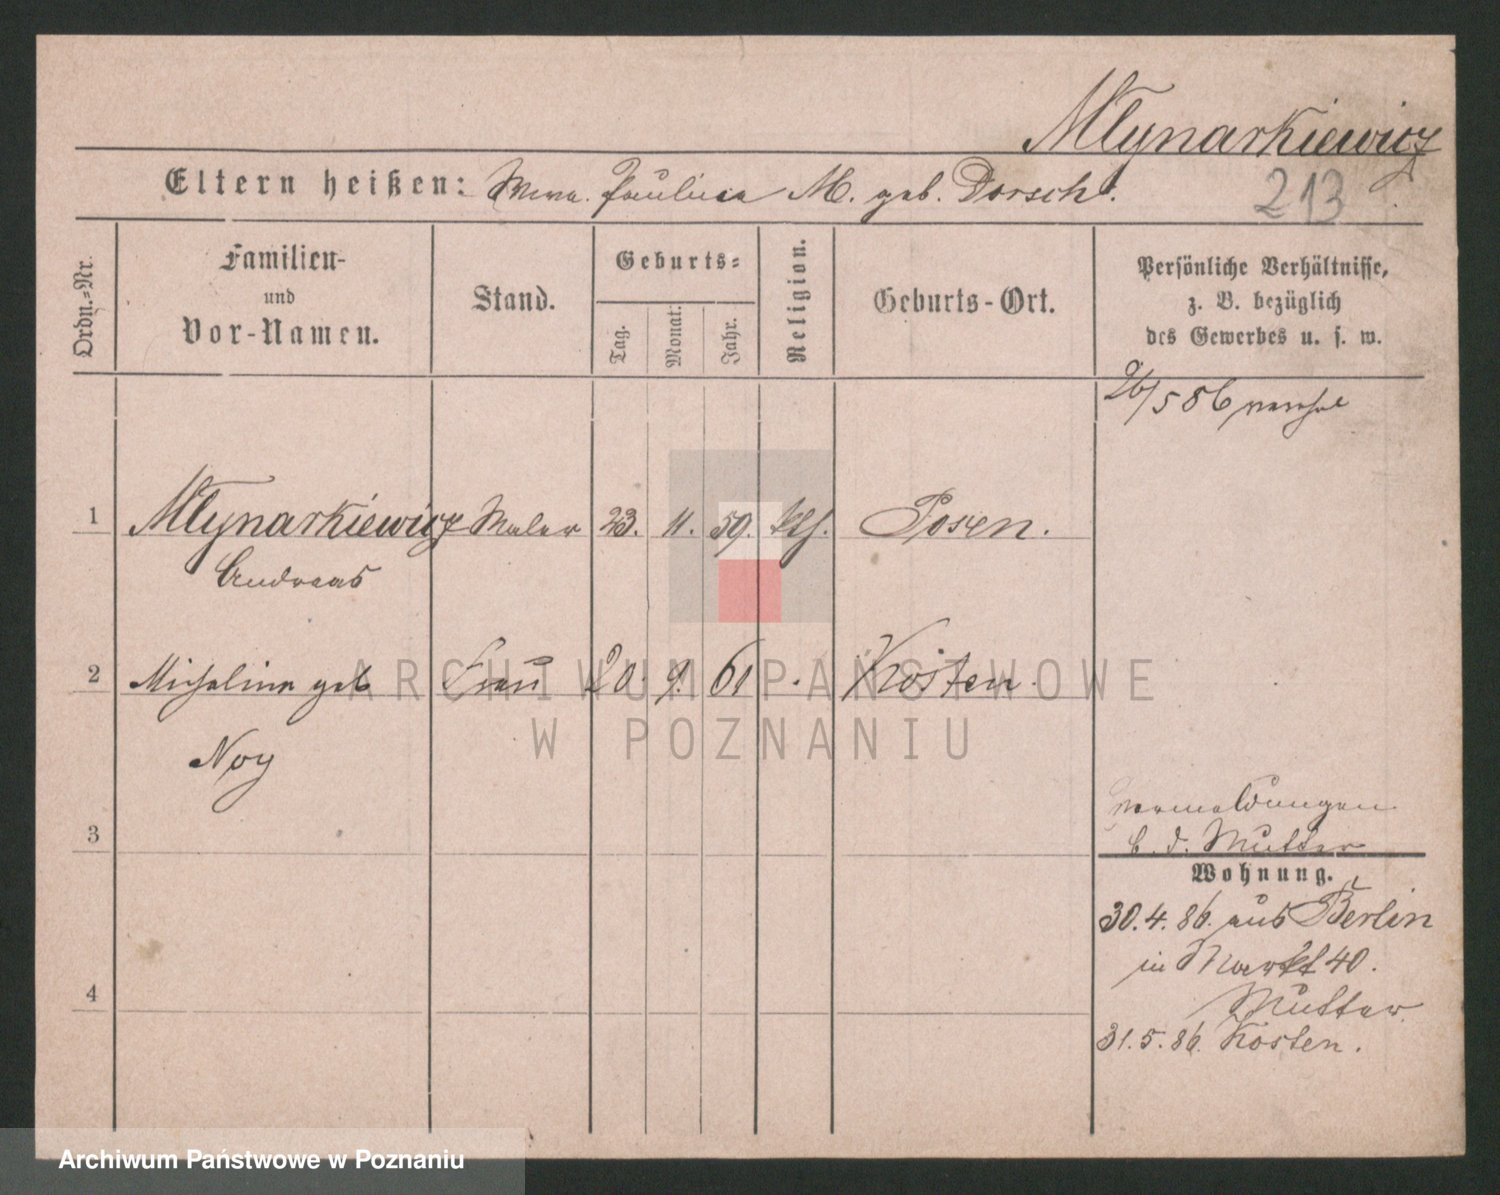 Mlynarkiewicz
Eltern heißen: Wwe. Paulina M. geb. Dorsch.
213
Ordn.-Nr.
Familien-
und
Vor-Namen.
Stand.
Geburts-
Tag.
Monat.
Jahr.
Religion.
Geburts-Ort.
Persönliche Verhältnisse,
z. B. bezüglich
des Gewerbes u. s. w.
26/5 86
1 Mlynarkiewicz Maler 23. 11. 59. kth. Posen.
Andreas
2 Michalina geb Frau 20. 9. 61 . Kosten.
Noy
3
4
Vermeldungen
b. d. Mutter
Wohnung.
30.4.86. aus Berlin
in Markt 40.
Mutter
31.5.86. Kosten.
ARCHIWUM PAŃSTWOWE
W POZNANIU
Archiwum Państwowe w Poznaniu